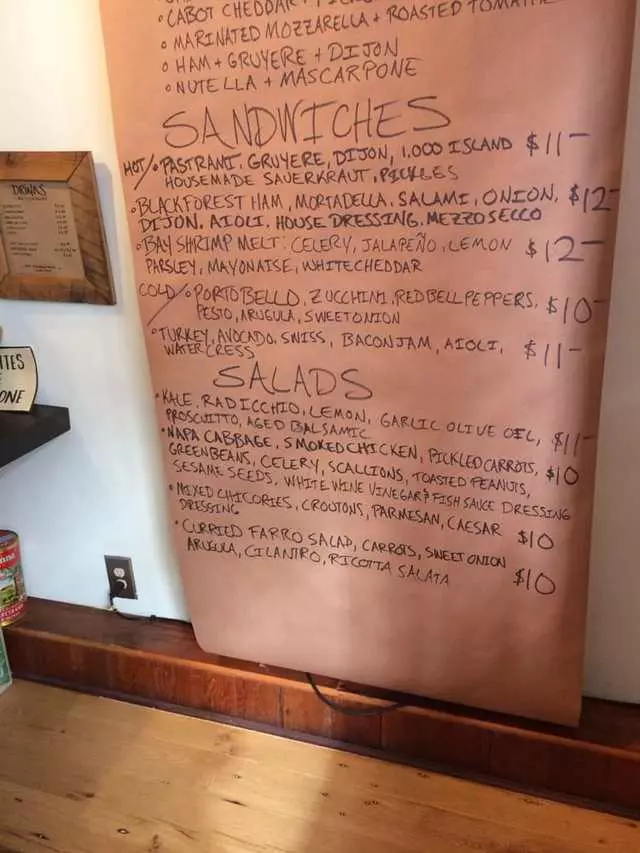 CABOT CHEDDAR +
MARINATED MOZZARELLA + ROASTED
HAM + GRUYERE + DIJON
NUTELLA + MASCARPONE
SANDWICHES
HOT/ • PASTRAMI, GRUYERE, DIJON, 1,000 ISLAND $11-
HOUSEMADE SAUERKRAUT, PICKLES
• BLACKFOREST HAM, MORTADELLA, SALAMI, ONION, $12-
DIJON, AIOLI, HOUSE DRESSING, MEZZO SECCO
• BAY SHRIMP MELT: CELERY, JALAPEÑO, LEMON $12-
PARSLEY, MAYONAISE, WHITE CHEDDAR
COLD/ • PORTOBELLO, ZUCCHINI, RED BELL PEPPERS, $10-
PESTO, ARUGULA, SWEET ONION
• TURKEY, AVOCADO, SWISS, BACON JAM, AIOLI, $11-
WATER CRESS
SALADS
• KALE, RADICCHIO, LEMON, GARLIC OLIVE OIL, $11-
PROSCUITTO, AGED BALSAMIC
• NAPA CABBAGE, SMOKED CHICKEN, PICKLED CARROTS, $10
GREEN BEANS, CELERY, SCALLIONS, TOASTED PEANUTS,
SESAME SEEDS, WHITE WINE VINEGAR & FISH SAUCE DRESSING
• MIXED CHICORIES, CROUTONS, PARMESAN, CAESAR $10
DRESSING
• CURRIED FARRO SALAD, CARROTS, SWEET ONION $10
ARUGULA, CILANTRO, RICOTTA SALATA
DRINKS
ONE